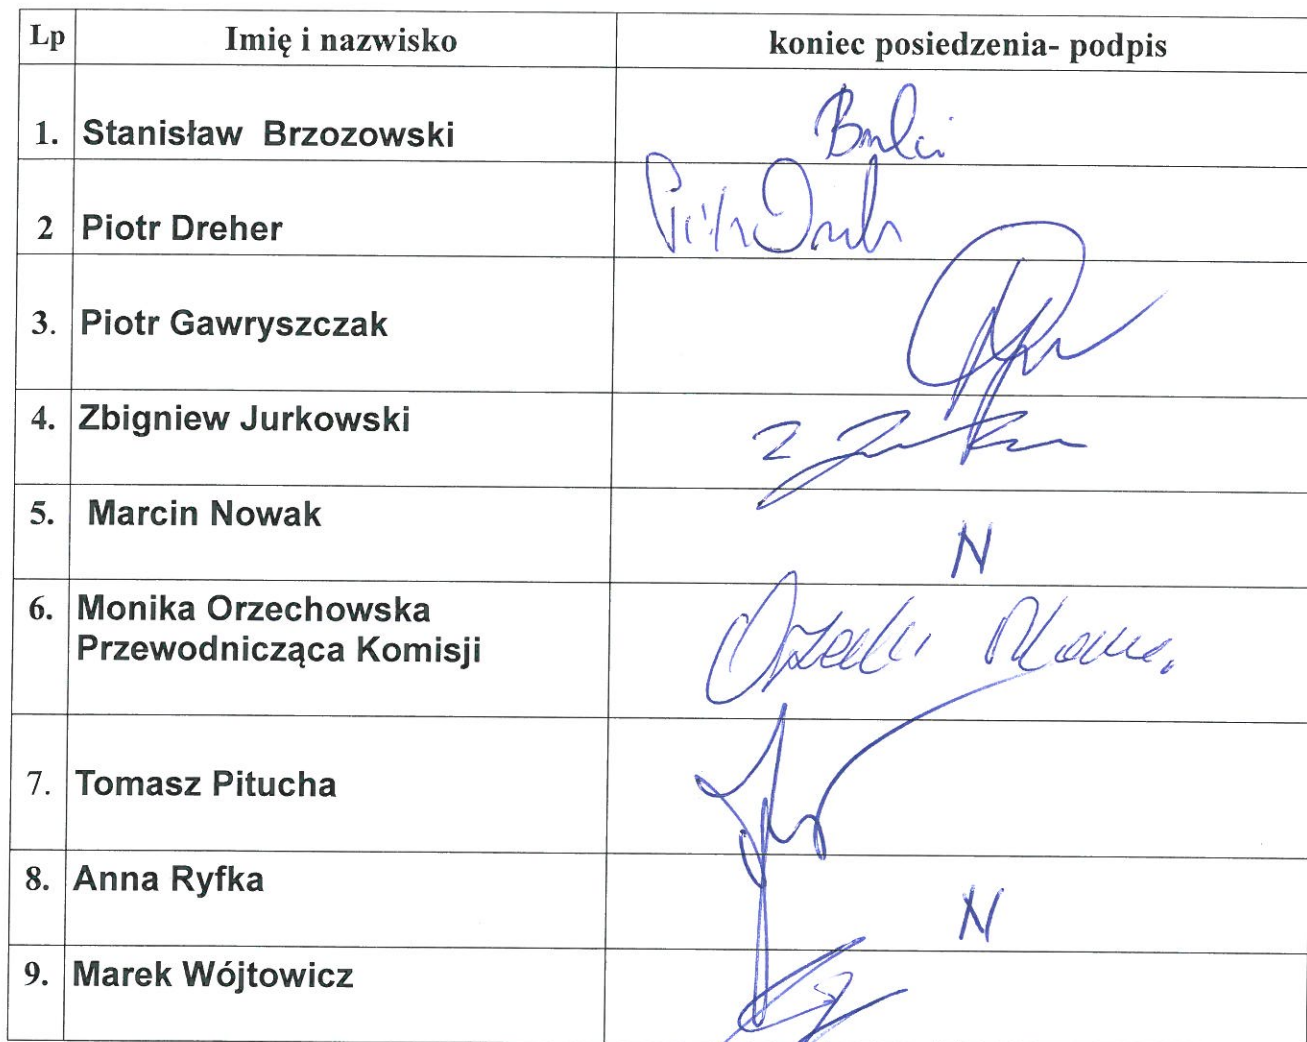 Lp Imię i nazwisko koniec posiedzenia- podpis
1. Stanisław Brzozowski
2 Piotr Dreher
3. Piotr Gawryszczak
4. Zbigniew Jurkowski
5. Marcin Nowak N
6. Monika Orzechowska
Przewodnicząca Komisji
7. Tomasz Pitucha
8. Anna Ryfka N
9. Marek Wójtowicz